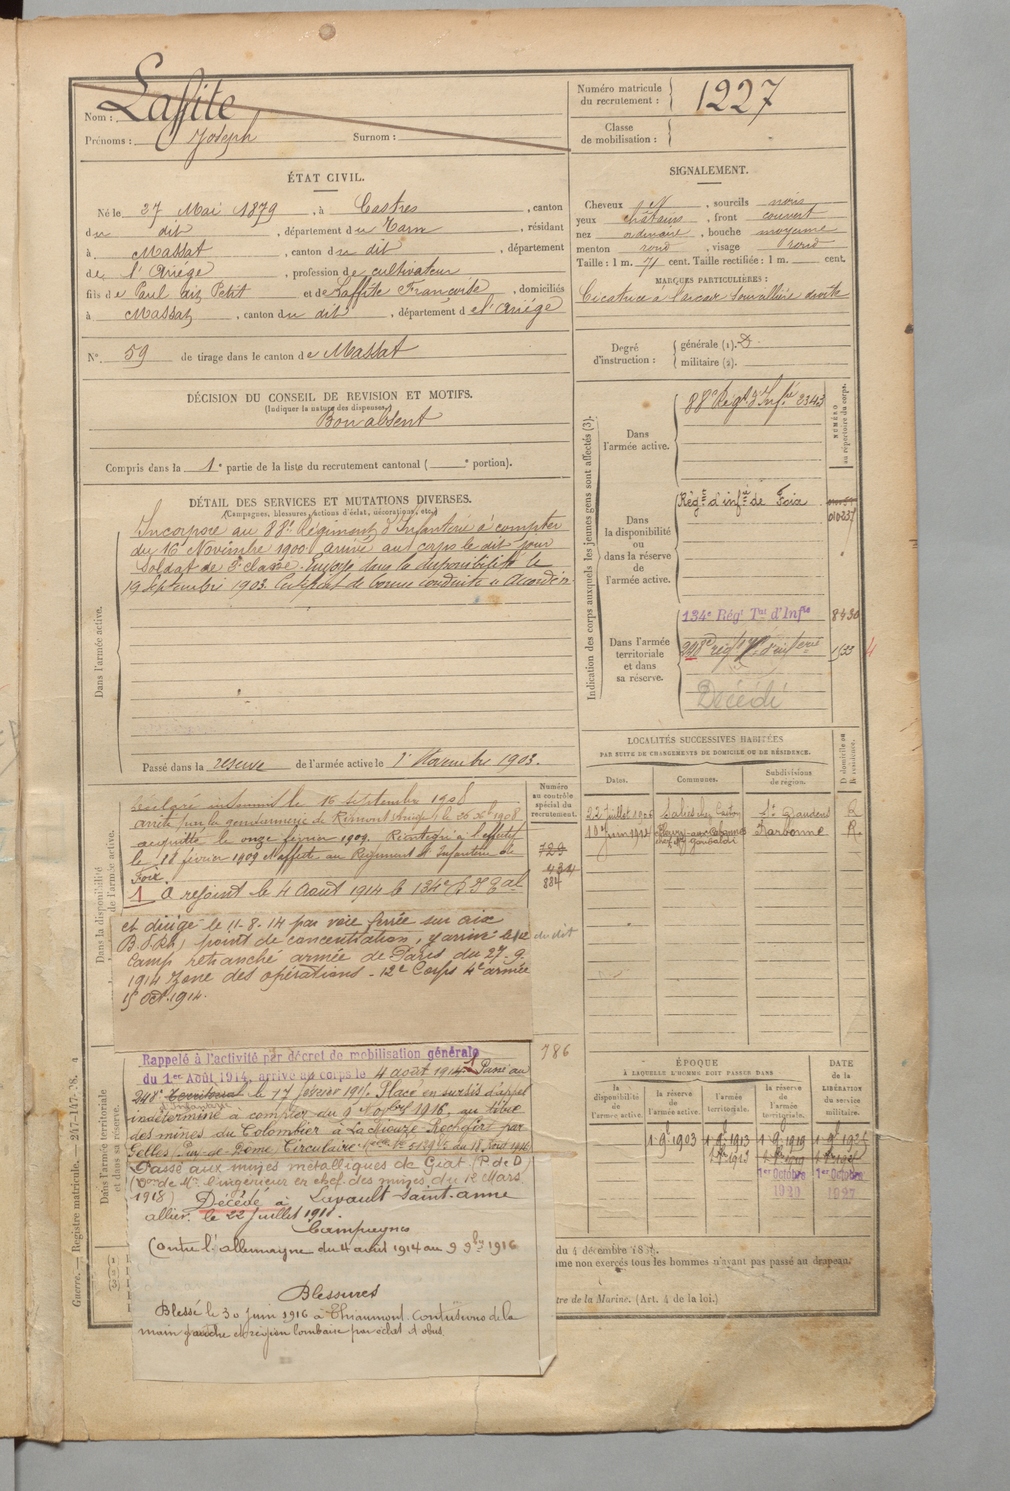 Nom : Laffite
Prénoms : Joseph Surnom :
Numéro matricule du recrutement : 1227
Classe de mobilisation :
ÉTAT CIVIL.
Né le 27 Mai 1879, à Castres, canton
du dit, département du Tarn, résidant
à Massat, canton du dit, département
de l'Ariége, profession de cultivateur
fils de Paul Petit et de Laffite Françoise, domiciliés
à Massat, canton du dit, département de l'Ariége
N° 59 de tirage dans le canton de Massat
DÉCISION DU CONSEIL DE REVISION ET MOTIFS.
(Indiquer la nature des dispenses.)
Bon absent
Compris dans la 1e partie de la liste du recrutement cantonal ( e portion).
DÉTAIL DES SERVICES ET MUTATIONS DIVERSES.
(Campagnes, blessures, actions d'éclat, décorations, etc.)
Dans l'armée active.
Incorporé au 88e Régiment d'Infanterie à compter
du 16 Novembre 1900 arrivé au corps le dit jour
Soldat de 2e classe. Envoyé dans la disponibilité le
19 Septembre 1903. Certificat de bonne conduite "Accordé"
Passé dans la réserve de l'armée active le 1er Novembre 1903.
SIGNALEMENT.
Cheveux , sourcils noirs
yeux châtains, front couvert
nez ordinaire, bouche moyenne
menton rond, visage rond
Taille : 1 m. 71 cent. Taille rectifiée : 1 m. cent.
MARQUES PARTICULIÈRES :
Cicatrice à l'arcade sourcillière droite
Degré d'instruction :
générale (1).
militaire (2).
Indication des corps auxquels les jeunes gens sont affectés (3).
NUMÉRO au répertoire du corps.
Dans l'armée active.
88e Régt d'Infrie 2343
Dans la disponibilité ou dans la réserve de l'armée active.
Régt d'infie de Foix
Dans l'armée territoriale et dans sa réserve.
134e Régt Tal d'Infie 8430
248e régt d'infterie 1533
Décédé
LOCALITÉS SUCCESSIVES HABITÉES
PAR SUITE DE CHANGEMENTS DE DOMICILE OU DE RÉSIDENCE.
Dates. Communes. Subdivisions de région. D domicile ou R résidence.
22 juillet St Gaudens
10 juin Narbonne R.
Dans la disponibilité
de l'armée active.
Numéro au contrôle spécial du recrutement.
Déclaré insoumis le 16 septembre 1908
arrêté par la gendarmerie de
acquitté le onze février 1909. Réintégré à l'effectif
le 18 février 1909. Affecté au Régiment d'Infanterie de
Foix
729
434
884
1 A rejoint le 4 Août 1914 le 134e
et dirigé le 11-8-14 par voie ferrée sur aix
point de concentration, y arrivé le du dit
Camp retranché armée de Paris du 27-9
1914 Zone des opérations - 12e Corps 4e armée
15 Oct. 1914.
786
Dans l'armée territoriale
et dans sa réserve.
Rappelé à l'activité par décret de mobilisation générale
du 1er Août 1914, arrivé au corps le 4 août 1914. Passé au
248e Territorial le 17 février 191 . Placé en sursis d'appel
d'Infanterie
indéterminé à compter du 9 1916, au titre
des mines du Colombier à La Rochefort par
Gelles Puy-de-Dôme Circulaire du 18 Août 1916
Passé aux mines métalliques de Giat (P de D)
de Mr l'ingénieur en chef des mines du 12 Mars
1918) Décédé à Lavault Saint-anne
allier. le 22 Juillet 1918.
Campagnes
Contre l'allemagne du 4 août 1914 au 9 9bre 1916
Blessures
Blessé le 30 juin 1916 à Thiaumont. Contusions de la
main gauche et région lombaire par éclat d'obus.
ÉPOQUE
À LAQUELLE L'HOMME DOIT PASSER DANS
DATE de la LIBÉRATION du service militaire.
la disponibilité de l'armée active.
la réserve de l'armée active.
l'armée territoriale.
la réserve de l'armée territoriale.
1 9bre 1903 1 9bre 1913 1 9bre 1919
1er Octobre 1920
1er Octobre 1927
du 4 décembre
me non exercés tous les hommes n'ayant pas passé au drapeau.
tre de la Marine. (Art. 4 de la loi.)
Guerre. — Registre matricule. — 247-147-28.